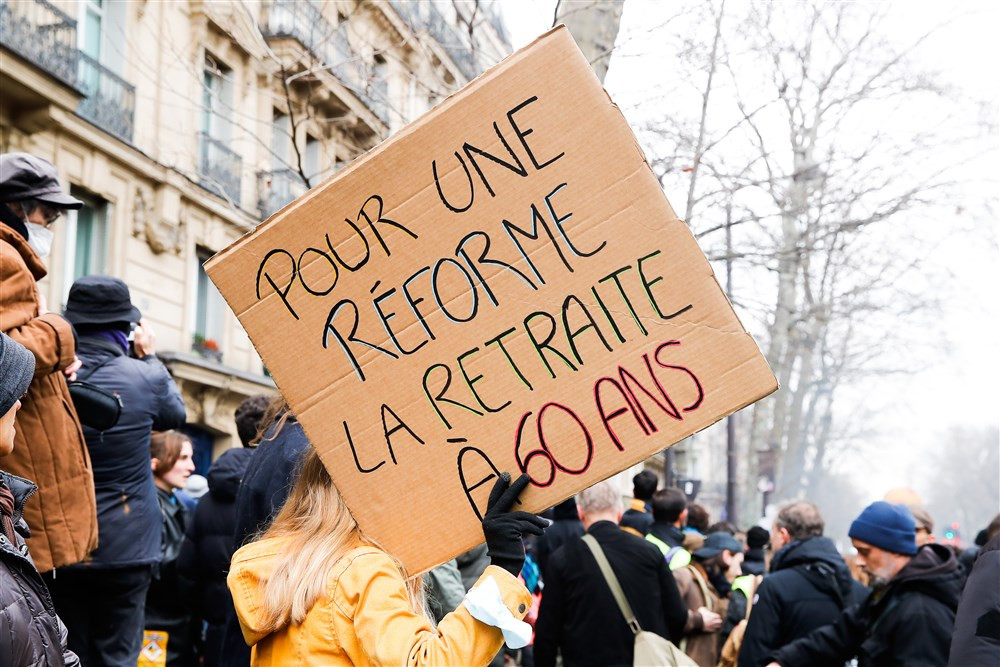 POUR UNE
RÉFORME
LA RETRAITE
À 60 ANS